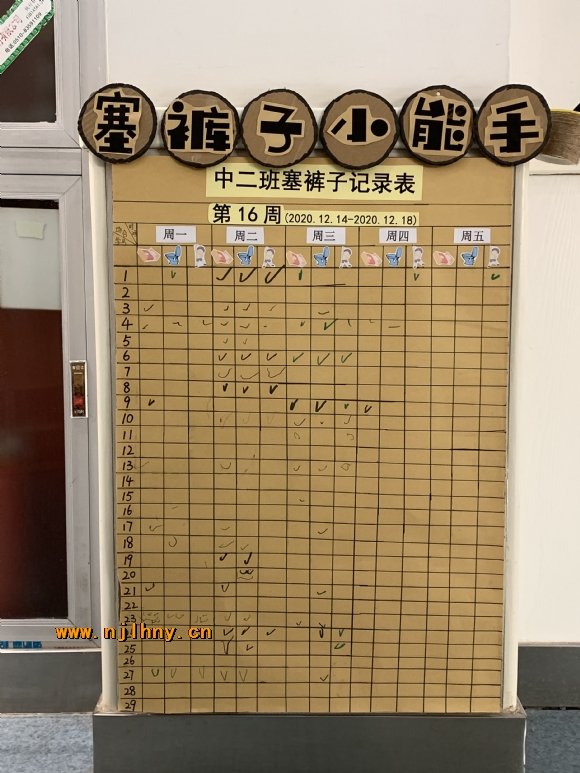 塞裤子小能手
中二班塞裤子记录表
第16周(2020.12.14-2020.12.18)
周一 周二 周三 周四 周五
1
2
3
4
5
6
7
8
9
10
11
12
13
14
15
16
17
18
19
20
21
22
23
24
25
26
27
28
29
www.njlhny.cn